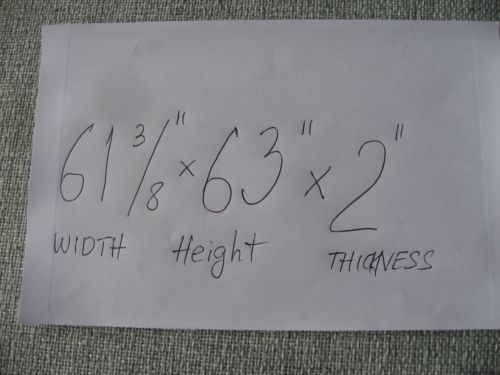 61 3/8" x 63" x 2"
WIDTH Height THICKNESS